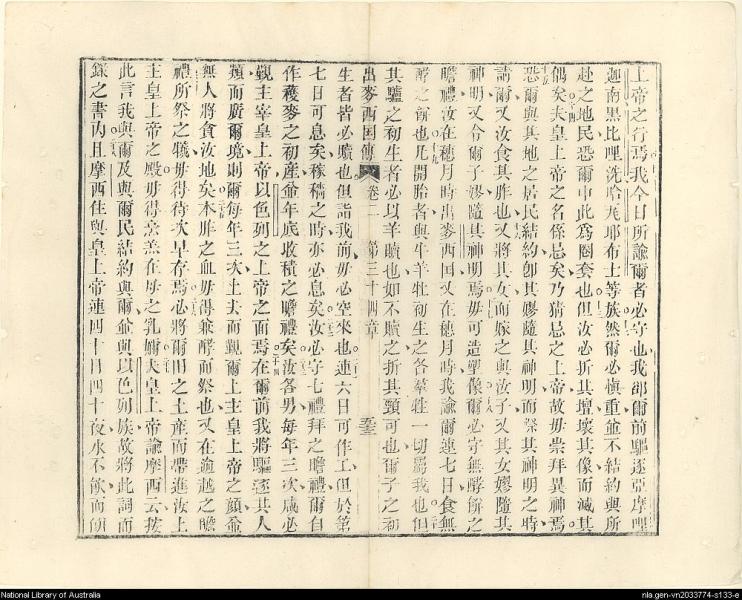 上帝之行焉我今日所諭爾者必守也我卻爾前驅逐亞摩哩
迦南黑比哩洗哈夫耶布士等族然爾必慎重並不結約與所
赴之地民恐爾中此為圈套也但汝必折其壇壞其像而滅其
偶矣夫皇上帝之名係忌矣乃猜忌之上帝故毋崇拜異神焉
恐爾與其地之居民結約卽其嫪隨其神明而祭其神明之時
請爾又汝食其胙也又將其女而嫁之與汝子又其女嫪隨其
神明又令爾子嫪隨其神明焉毋可造塑像爾必守無酵餅之
瞻禮汝在穗月時出麥西國又在穗月時我諭爾連七日食無
酵之餅也凡開胎者與牛羊牡初生之各羣牲一切屬我也但
其驢之初生者必以羊贖也如不贖之折其頸可也爾子之初
出麥西國傳 卷二 第三十四章 
生者皆必贖也但詣我前毋必空來也連六日可作工但於第
七日可息矣稼穡之時亦必息矣汝必守七禮拜之瞻禮爾自
作穫麥之初產並年底收積之瞻禮矣汝各男每年三次咸必
覿主宰皇上帝以色列之上帝之面焉在爾前我將驅逐其人
類而廣爾境則爾每年三次上去而覿爾上主皇上帝之顏並
無人將貪汝地矣本胙之血毋得兼酵而祭也又在逾越之瞻
禮所祭之犧毋得待次早存焉必將爾田之土產而帶進汝上
主皇上帝之殿毋得烹羔在母之乳嫡夫皇上帝諭摩西云按
此言我與爾及與爾民結約與爾並與以色列族故將此詞而
錄之書內且摩西住與皇上帝連四十日四十夜水不飲而餅
National Library of Australia
nla.gen-vn2033774-s133-e